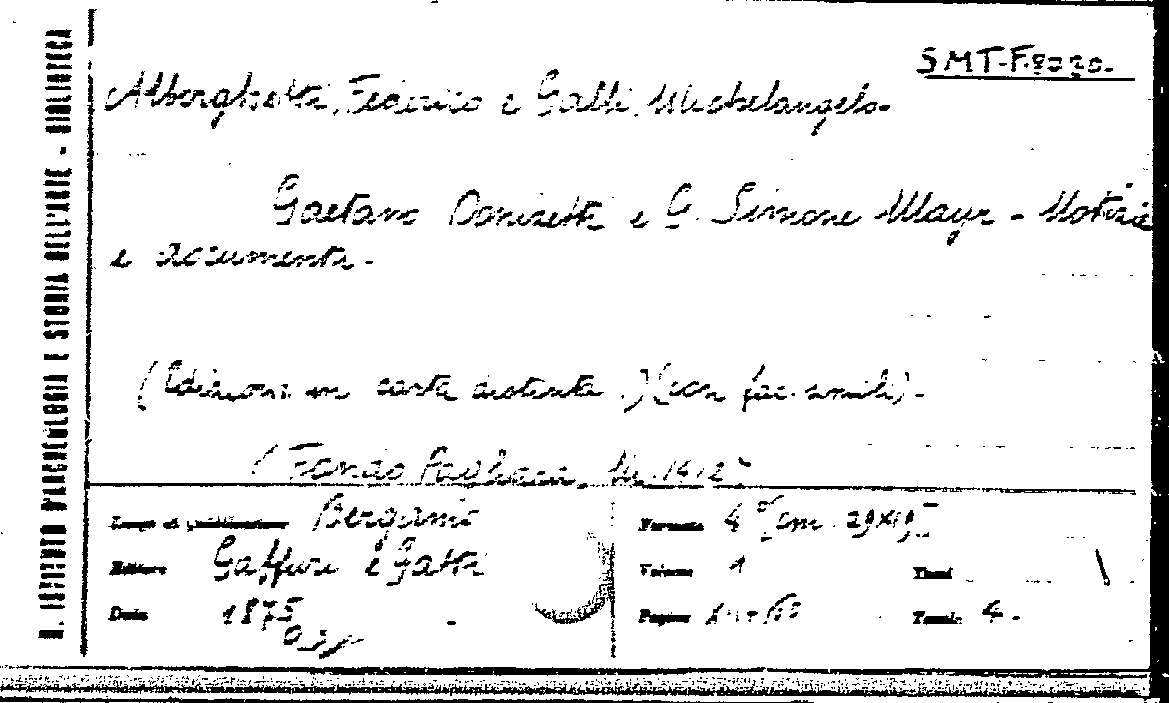 SMT-F.8020.
Alborghetti, Federico e Galli, Michelangelo
Gaetano Donizetti e G. Simone Mayr - Notizie
e documenti.
(Edizione in carta distinta.) (con fac-simili).
(Fondo Pagliara,
Luogo di pubblicazione Bergamo
Editore Gaffuri e Gatti
Data 1875
Formato 4° [cm. 29x19]
Volume 1
Tomi
Pagine
Tavole 4.
R. ISTITUTO D'ARCHEOLOGIA E STORIA DELL'ARTE - BIBLIOTECA